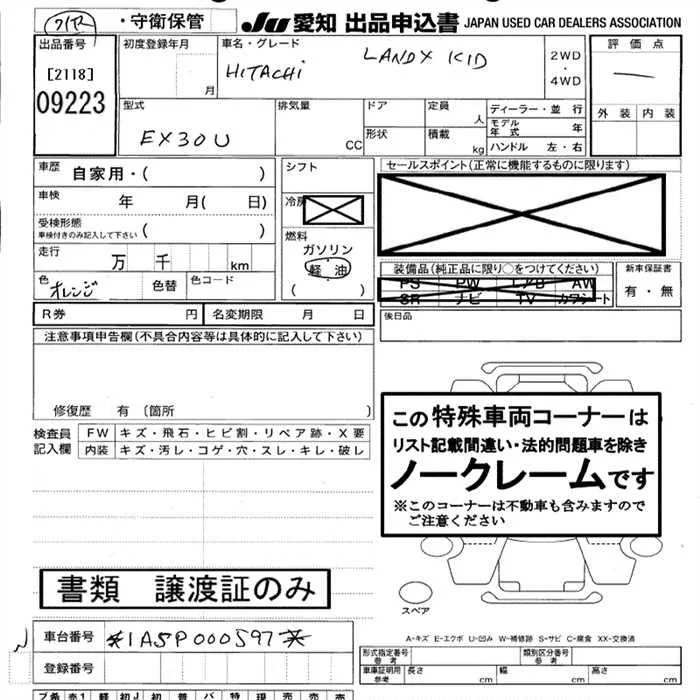 ・守衛保管 JU 愛知 出品申込書 JAPAN USED CAR DEALERS ASSOCIATION
出品番号 初度登録年月 車名・グレード 評価点
[2118] 月 HITACHI LANDX KID 2WD ・ 4WD
09223 外装 内装
型式 排気量 ドア 定員 人 ディーラー・並行
EX30U CC 形状 積載 kg モデル年式 年
ハンドル 左・右
車歴 自家用・( ) シフト セールスポイント(正常に機能するものに限ります)
車検 年 月( 日) 冷房
受検形態 車検付きのみ記入して下さい ( ) 燃料
走行 万 千 km ガソリン
軽油
( )
色 オレンジ 色替 色コード
装備品(純正品に限り○をつけてください) 新車保証書
PS PW エアB AW 有・無
SR ナビ TV カワシート
R券 円 名変期限 月 日 後日品
注意事項申告欄(不具合内容等は具体的に記入して下さい)
修復歴 有〔箇所 〕
検査員記入欄 FW キズ・飛石・ヒビ割・リペア跡・X要
内装 キズ・汚レ・コゲ・穴・スレ・キレ・破レ
この特殊車両コーナーは
リスト記載間違い・法的問題車を除き
ノークレームです
※このコーナーは不動車も含みますので
ご注意ください
書類 譲渡証のみ
スペア
A-キズ E-エクボ U-凹み W-補修跡 S-サビ C-腐食 XX-交換済
車台番号 *1A5P000597*
登録番号
形式指定番号 参考 類別区分番号 参考
車庫証明用 参考 長さ 幅 高さ